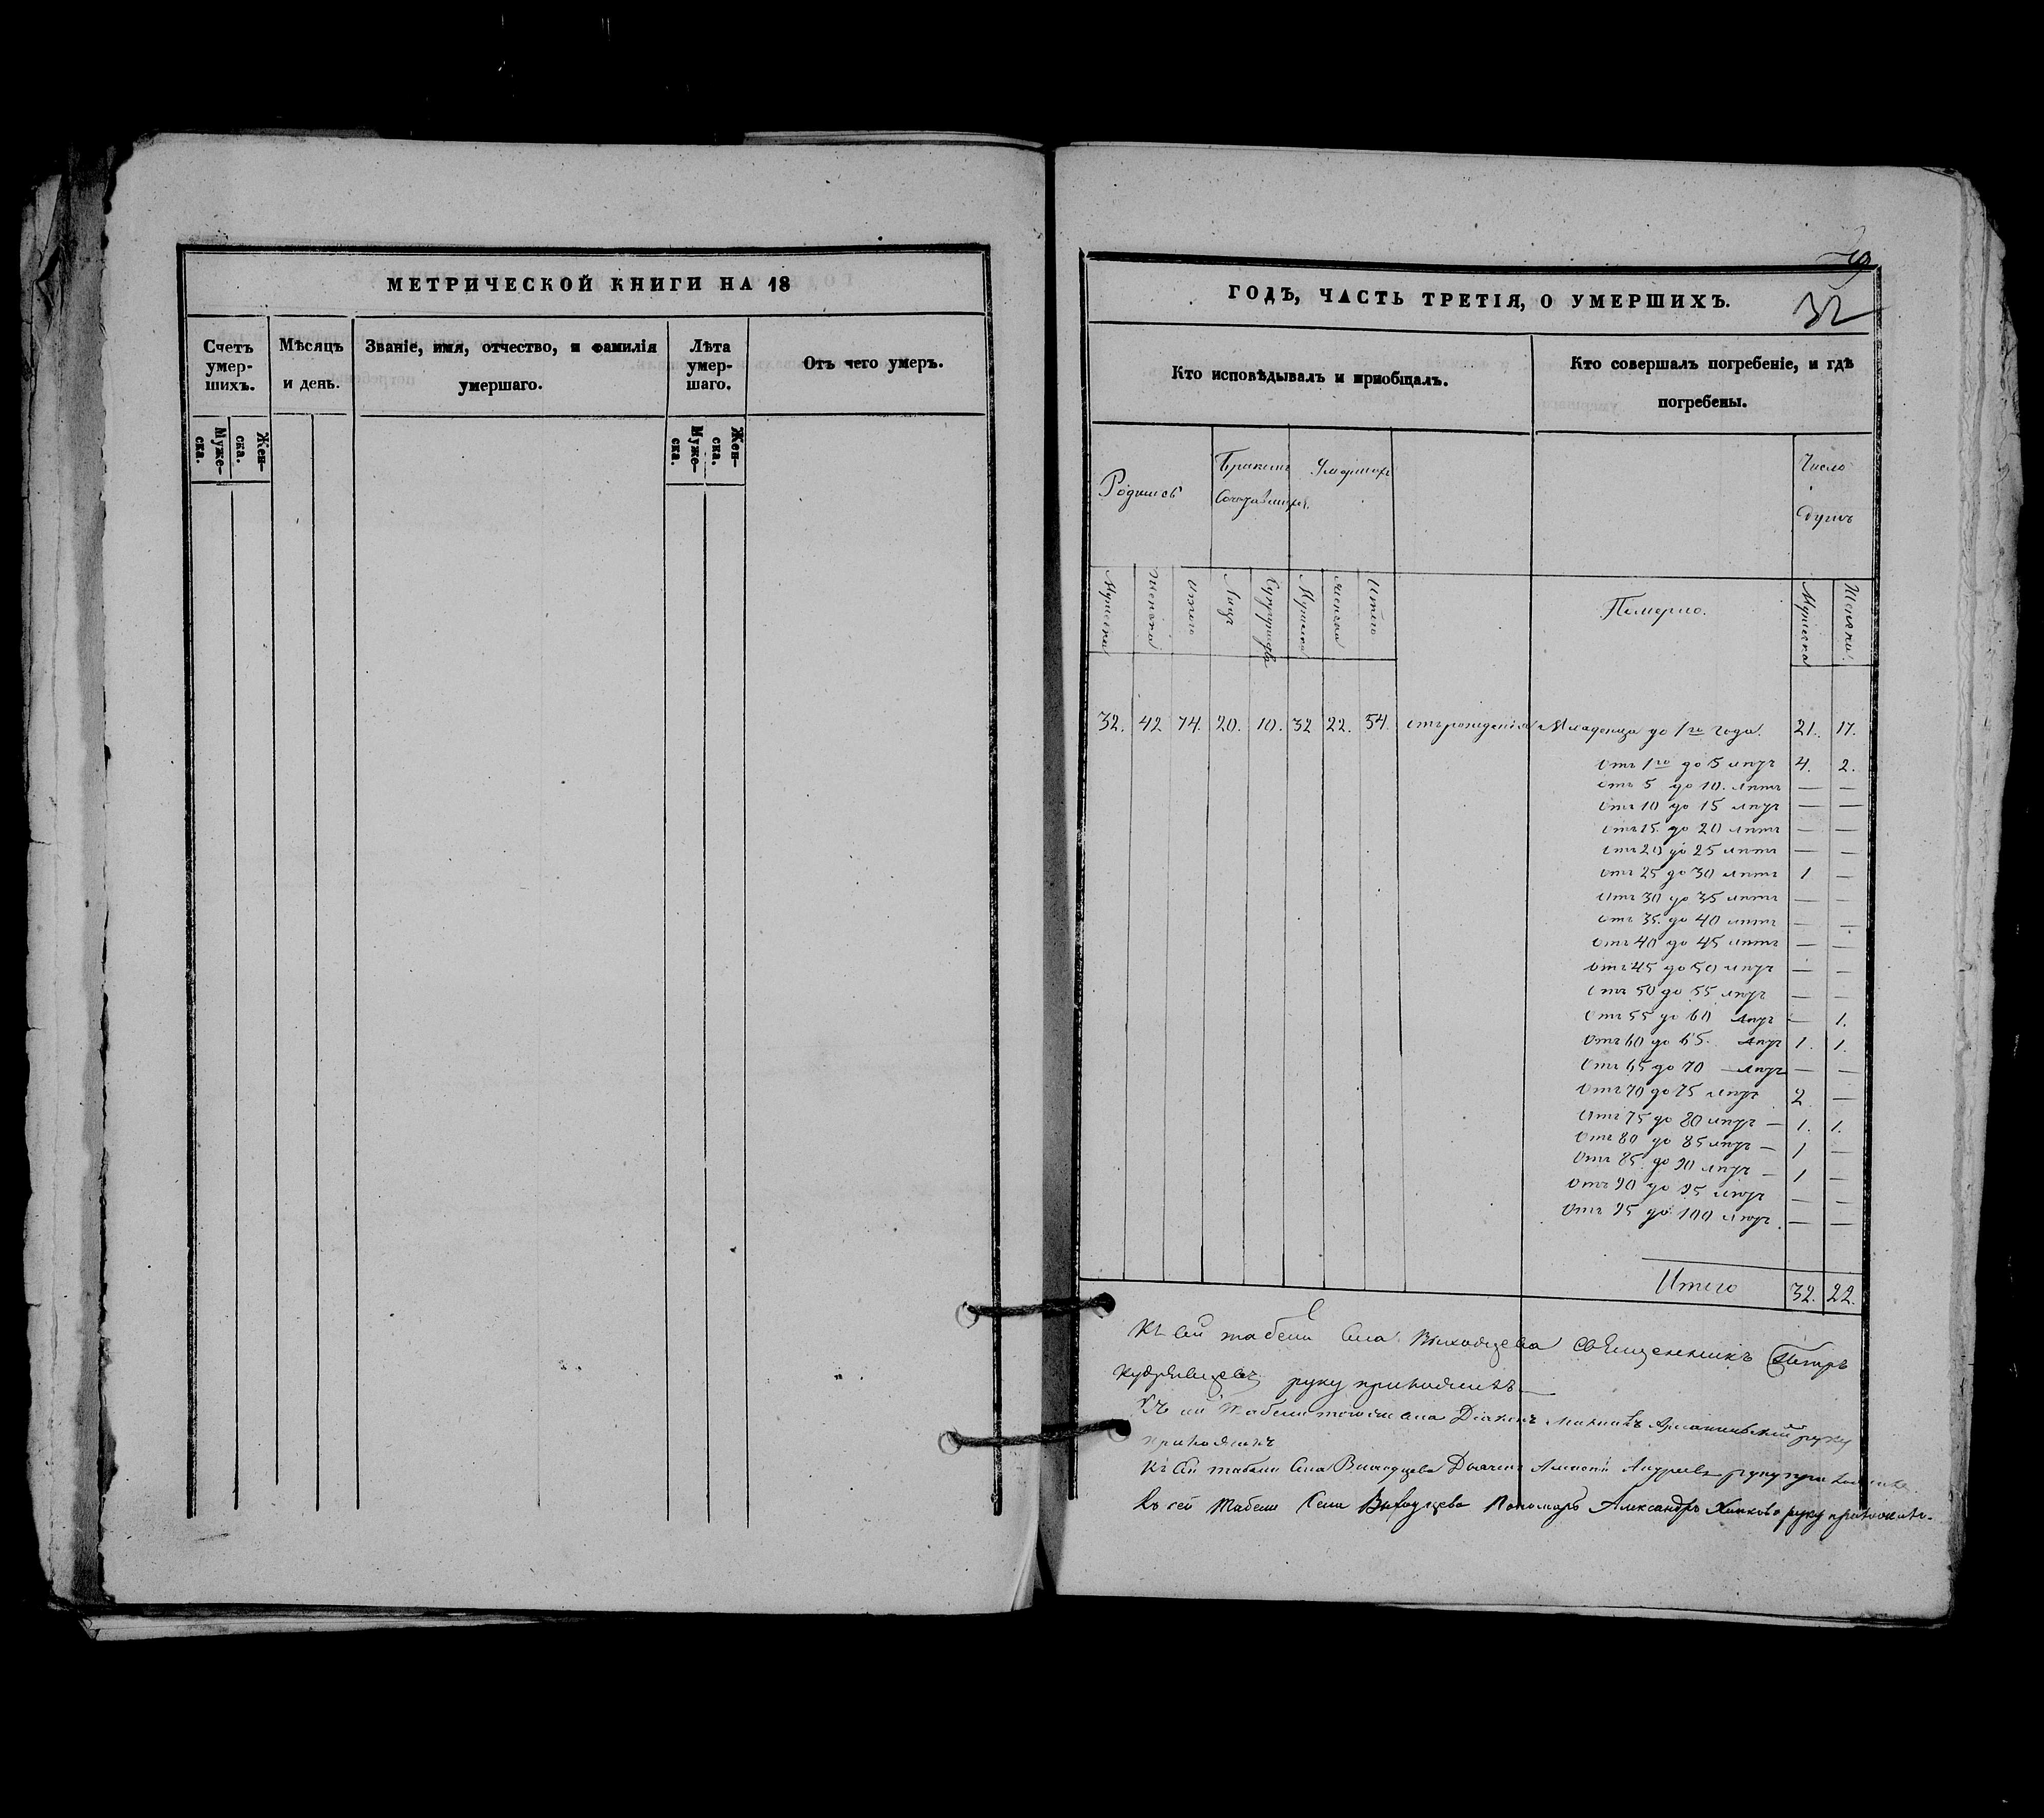 МЕТРИЧЕСКОЙ КНИГИ НА 18
Счетъ умер-шихъ.
Мѣсяцъ и день.
Званіе, имя, отчество, и фамилія умершаго.
Лѣта умер-шаго.
Отъ чего умеръ.
Муже-ска.
Жен-ска.
Муже-ска.
Жен-ска.
32
ГОДЪ, ЧАСТЬ ТРЕТІЯ, О УМЕРШИХЪ.
Кто исповѣдывалъ и пріобщалъ.
Кто совершалъ погребеніе, и гдѣ погребены.
Родилось
Бракомъ
Умершихъ
Число
душъ
Мужеска
Женска
Итого
Лицъ
Супружествъ
Мужеска
Женска
Итого
Померло.
Мужеска
Женска
32. 42 74. 20. 10. 32 22. 54. отъ рожденія Младенца до 1го года. 21. 17.
Отъ 1го до 5 лѣтъ 4. 2.
отъ 5 до 10. лѣтъ — —
Отъ 10 до 15 лѣтъ — —
отъ 15. до 20 лѣтъ — —
отъ 20 до 25 лѣтъ — —
отъ 25 до 30 лѣтъ 1 —
отъ 30 до 35 лѣтъ — —
отъ 35. до 40 лѣтъ — —
отъ 40 до 45 лѣтъ — —
отъ 45 до 50 лѣтъ — —
отъ 50 до 55 лѣтъ — —
отъ 55 до 60 лѣтъ — 1.
отъ 60 до 65. лѣтъ 1. 1.
отъ 65 до 70 — лѣтъ — —
отъ 70 до 75 лѣтъ 2 —
отъ 75 до 80 лѣтъ — 1. 1.
отъ 80 до 85 лѣтъ — 1 —
отъ 85. до 90 лѣтъ — 1 —
отъ 90 до 95 лѣтъ — —
отъ 95 до 100 лѣтъ. — —
Итого 32. 22.
Къ сей табели села Выходцева священникъ Петръ
Кудрявцевъ руку приложилъ
Къ сей табели тогожъ села Діаконъ руку
приложилъ
Къ сей табели села Выходцева Дьячекъ Алексѣй Андреевъ руку приложилъ
Къ сей табели села Выходцева Пономарь Александръ руку приложилъ.